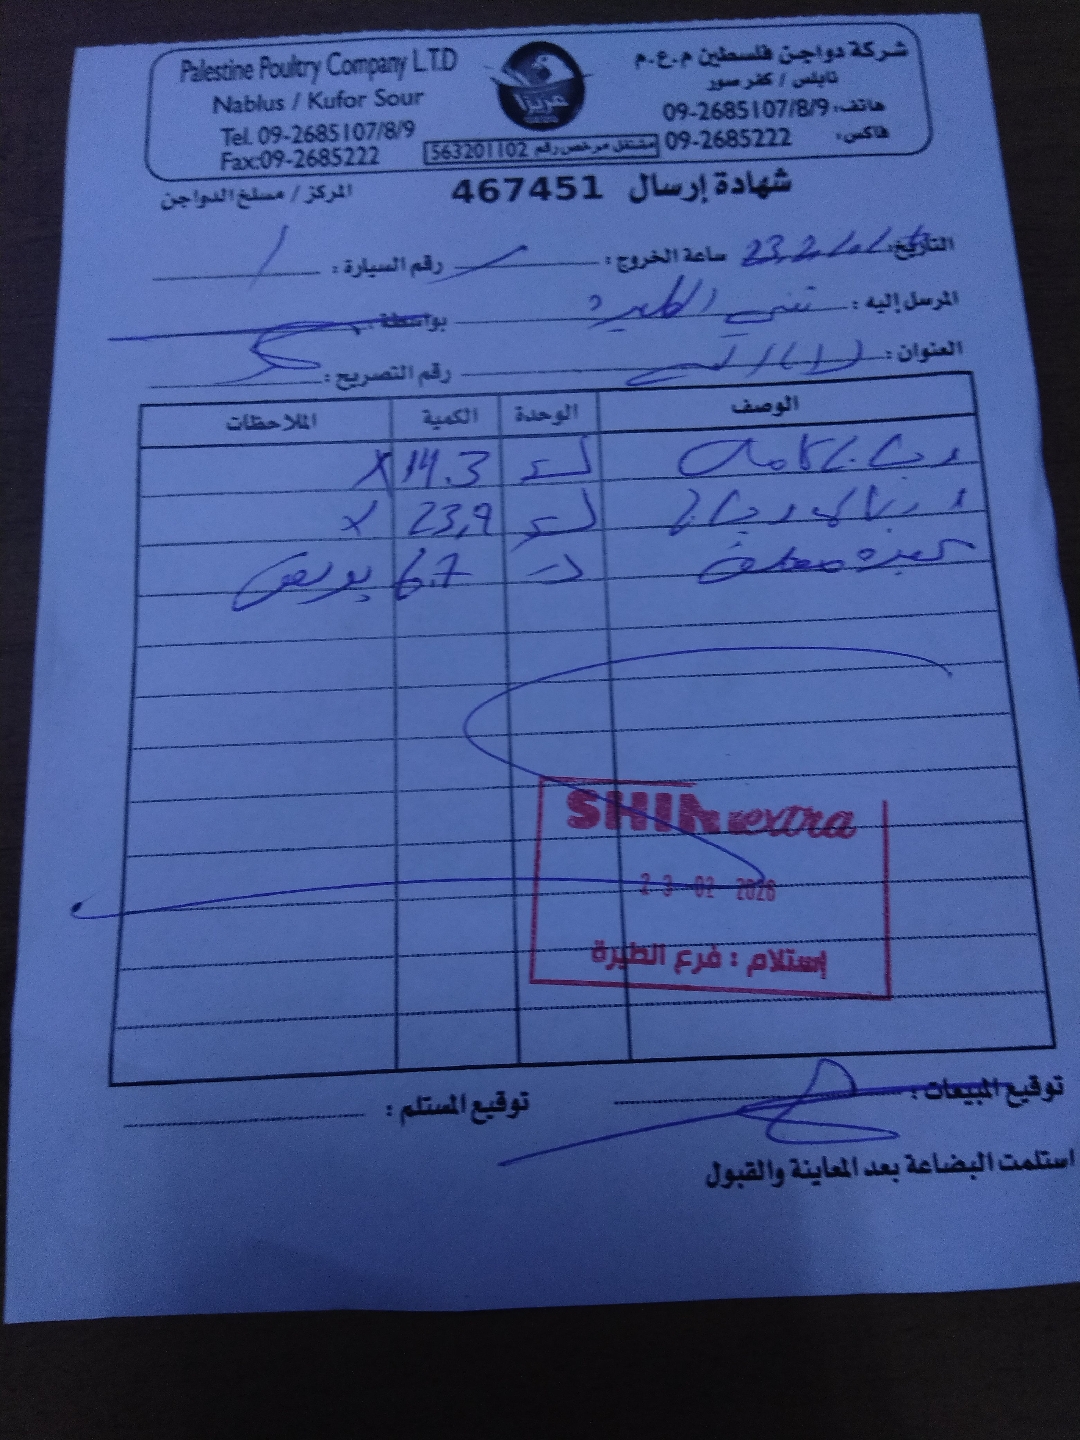 Palestine Poultry Company L.T.D
Nablus / Kufor Sour
Tel. 09-2685107/8/9
Fax:09-2685222
عزيزا
مشتغل مرخص رقم 563201102
شركة دواجن فلسطين م.ع.م
نابلس / كفر صور
هاتف: 09-2685107/8/9
فاكس: 09-2685222
شهادة إرسال 467451
المركز / مسلخ الدواجن
التاريخ: 23.2 ساعة الخروج: رقم السيارة: /
المرسل إليه: الطيرة بواسطة:
العنوان: رقم التصريح:
الوصف الوحدة الكمية الملاحظات
دجاج كاملة كغ 14.3 X
دجاج كغ 23.9 X
كبدة 6.7
SHINI extra
23 02 2026
إستلام : فرع الطيرة
توقيع المبيعات: توقيع المستلم:
استلمت البضاعة بعد المعاينة والقبول